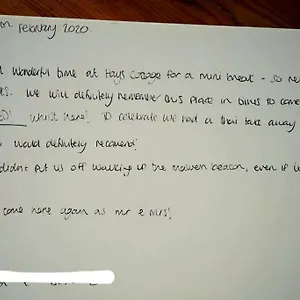 February 2020
wonderful time at Hays Cottage for a mini break - so
We will definitely remember this place in times to come
whilst here! To celebrate we had a thai take away
would definitely recommend!
didn't put us off walking up the malvern beacon, even if
come here again as mr & mrs!